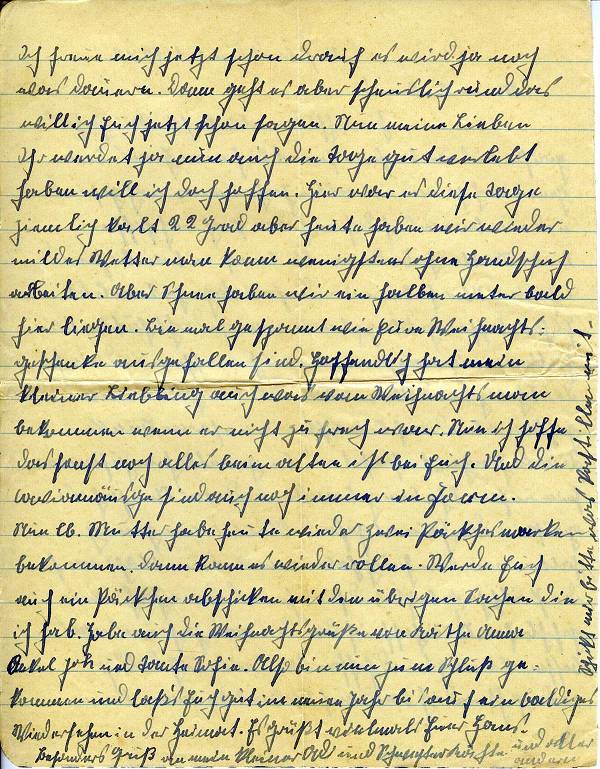 Ich freue mich jetzt schon drauf es wird ja noch
was dauern. Dann geht es aber scheuslich rund das
will ich Euch jetzt schon sagen. Nun meine Lieben
Ihr werdet ja nun auch die Tage gut verlebt
haben will ich doch hoffen. Hier war es diese Tage
ziemlich kalt 22 Grad aber heute haben wir wieder
mildes Wetter man kann wenigstens ohne Handschuh
arbeiten. Aber Schnee haben wir ein halben meter bald
hier liegen. Bin mal gespannt wie Eure Weihnachts-
geschenke ausgefallen sind. Hoffendlich hat mein
kleiner Liebling auch was vom Weihnachtsmann
bekommen wenn er nicht zu frech war. Nun ich hoffe
das sonst noch alles beim alten ist bei Euch. Und die
sind auch noch immer in Form.
Nun lb. Mutter habe heute wieder zwei Päckchesmarken
bekommen. dann kann es wieder rollen. Werde Euch
auch ein Päckchen abschicken mit den übrigen Sachen die
ich hab. Habe auch die Weihnachtsgrüße von Käthe Anna
Onkel Joh und Tante Sofie. Also bin nun zum Schluß ge-
kommen und laßt Euch gut im neuen Jahr bis auf ein baldiges
Wiedersehen in der Heimat. Es grüßt vielmals Euer Hans.
Besonders Gruß an mein kleiner Adi und Schwester Käthe und aller
andern
Schikt mir bitte was mit.